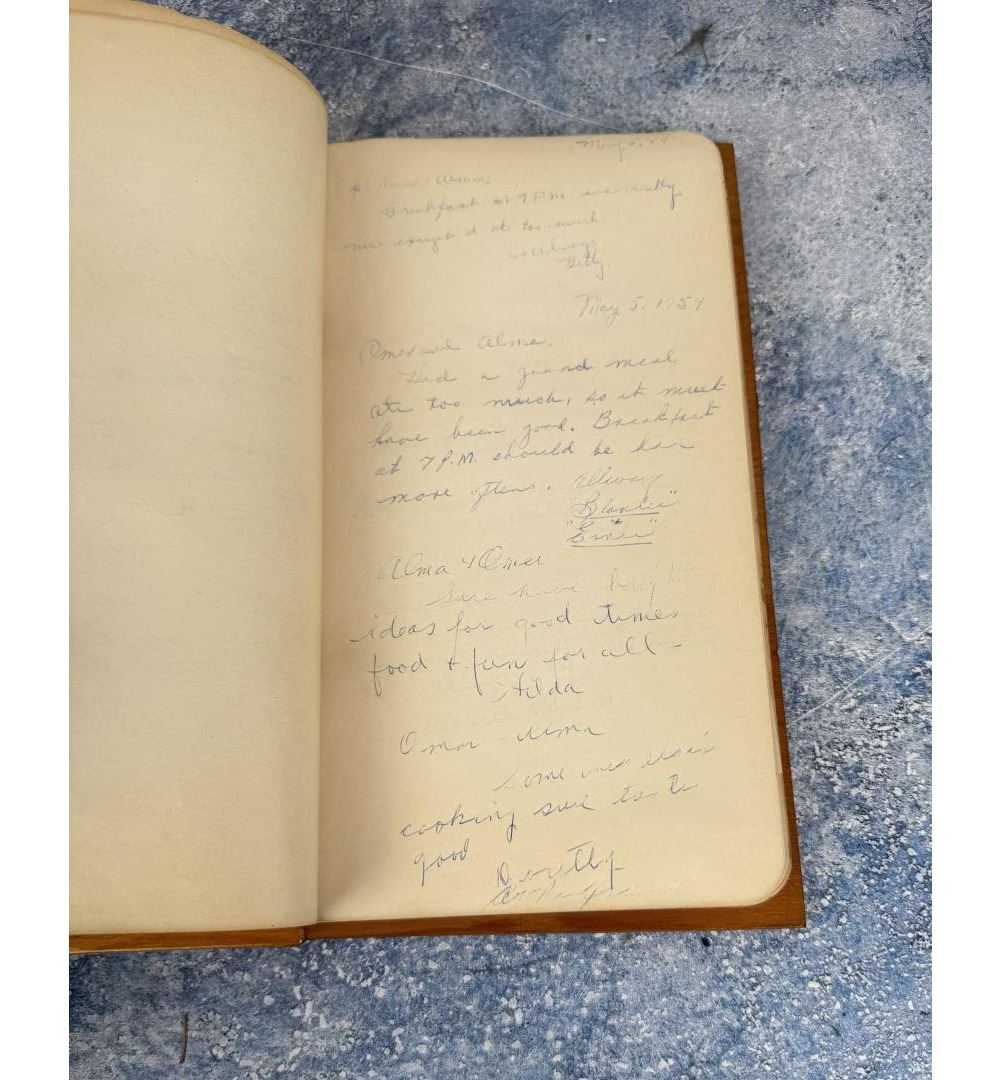 May 5, 54
Alma,
Breakfast at 7 P.M. was really
nice except I ate too much.
as Always
Betty.
May 5, 1954
Omer and Alma.
Had a grand meal
ate too much, so it must
have been good. Breakfast
at 7 P.M. should be had
more often. Allways
"Blanche"
"Ernie"
Alma & Omer
Sure have bright
ideas for good times
food & fun for all -
Hilda
Omar Alma
Some ones elses
cooking sure taste
good
Dorothy